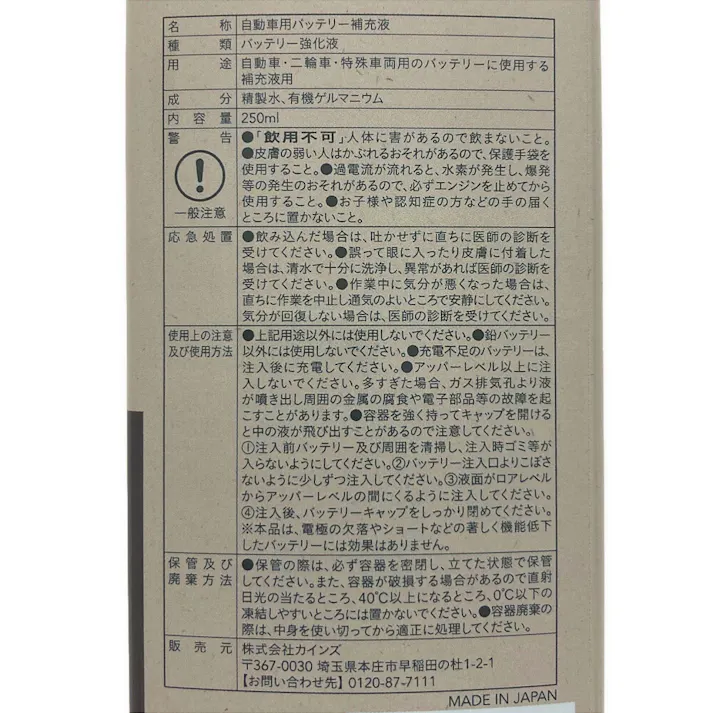 名称 自動車用バッテリー補充液
種類 バッテリー強化液
用途 自動車・二輪車・特殊車両用のバッテリーに使用する
補充液用
成分 精製水、有機ゲルマニウム
内容量 250ml
警告 ●「飲用不可」人体に害があるので飲まないこと。
●皮膚の弱い人はかぶれるおそれがあるので、保護手袋
を使用すること。●過電流が流れると、水素が発生し、爆発
等の発生のおそれがあるので、必ずエンジンを止めてから
使用すること。●お子様や認知症の方などの手の届く
ところに置かないこと。
一般注意
応急処置 ●飲み込んだ場合は、吐かせずに直ちに医師の診断を
受けてください。●誤って眼に入ったり皮膚に付着した
場合は、清水で十分に洗浄し、異常があれば医師の診断を
受けてください。●作業中に気分が悪くなった場合は、
直ちに作業を中止し通気のよいところで安静にしてください。
気分が回復しない場合は、医師の診断を受けてください。
使用上の注意
及び使用方法
●上記用途以外には使用しないでください。●鉛バッテリー
以外には使用しないでください。●充電不足のバッテリーは、
注入後に充電してください。●アッパーレベル以上に注
入しないでください。多すぎた場合、ガス排気孔より液
が噴き出し周囲の金属の腐食や電子部品等の故障を起
こすことがあります。●容器を強く持ってキャップを開ける
と中の液が飛び出すことがあるので注意してください。
①注入前バッテリー及び周囲を清掃し、注入時ゴミ等が
入らないようにしてください。②バッテリー注入口よりこぼさ
ないように少しずつ注入してください。③液面がロアレベル
からアッパーレベルの間にくるように注入してください。
④注入後、バッテリーキャップをしっかり閉めてください。
※本品は、電極の欠落やショートなどの著しく機能低下
したバッテリーには効果はありません。
保管及び
廃棄方法
●保管の際は、必ず容器を密閉し、立てた状態で保管
してください。また、容器が破損する場合があるので直射
日光の当たるところ、40℃以上になるところ、0℃以下の
凍結しやすいところには置かないでください。●容器廃棄の
際は、中身を使い切ってから適正に処理してください。
販売元 株式会社カインズ
〒367-0030 埼玉県本庄市早稲田の杜1-2-1
【お問い合わせ先】 0120-87-7111
MADE IN JAPAN